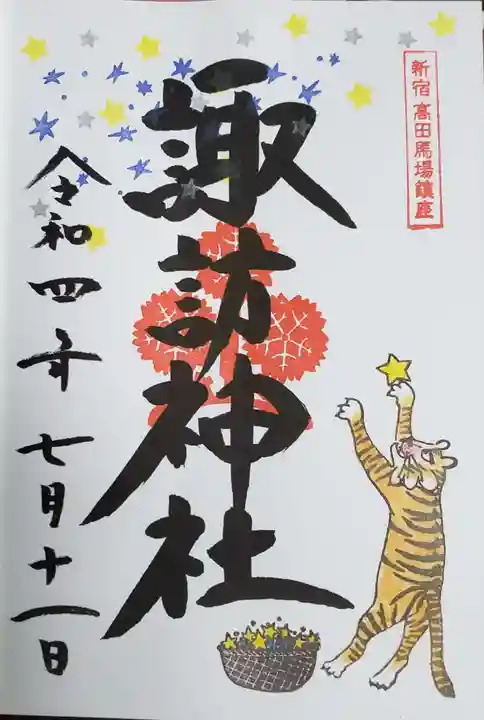 新宿高田馬場鎮座
諏訪神社
令和四年七月十一日